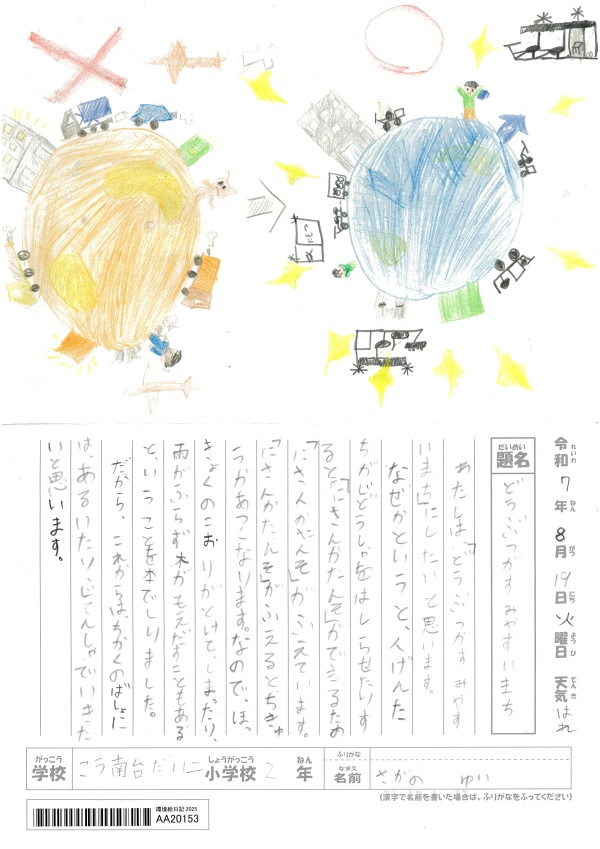 令和7年8月19日火曜日 天気はれ
れいわ ねん がつ にち ようび てんき
だいめい
題名 どうぶつがすみやすいまち
わたしは、「どうぶつがすみやす
いまち」にしたいと思います。
なぜかというと、人げんた
ちがじどうしゃをはしらせたりす
ると、「にさんかたんそ」がでてくるため
「にさんかたんそ」がふえています。
「にさんかたんそ」がふえるとちきゅ
うがあつくなります。なので、ほっ
きょくのこおりがとけてしまったり、
雨がふらず木がもえだすこともある
と、いうことを本でしりました。
だから、これからは、ちかくのばしょに
は、あるいたり、じてんしゃでいきた
いと思います。
がっこう
学校 こう南台だい二 しょうがっこう 小学校 2 ねん 年
ふりがな
なまえ
名前 さかの ゆい
(漢字で名前を書いた場合は、ふりがなをふってください)
環境絵日記 2025
AA20153